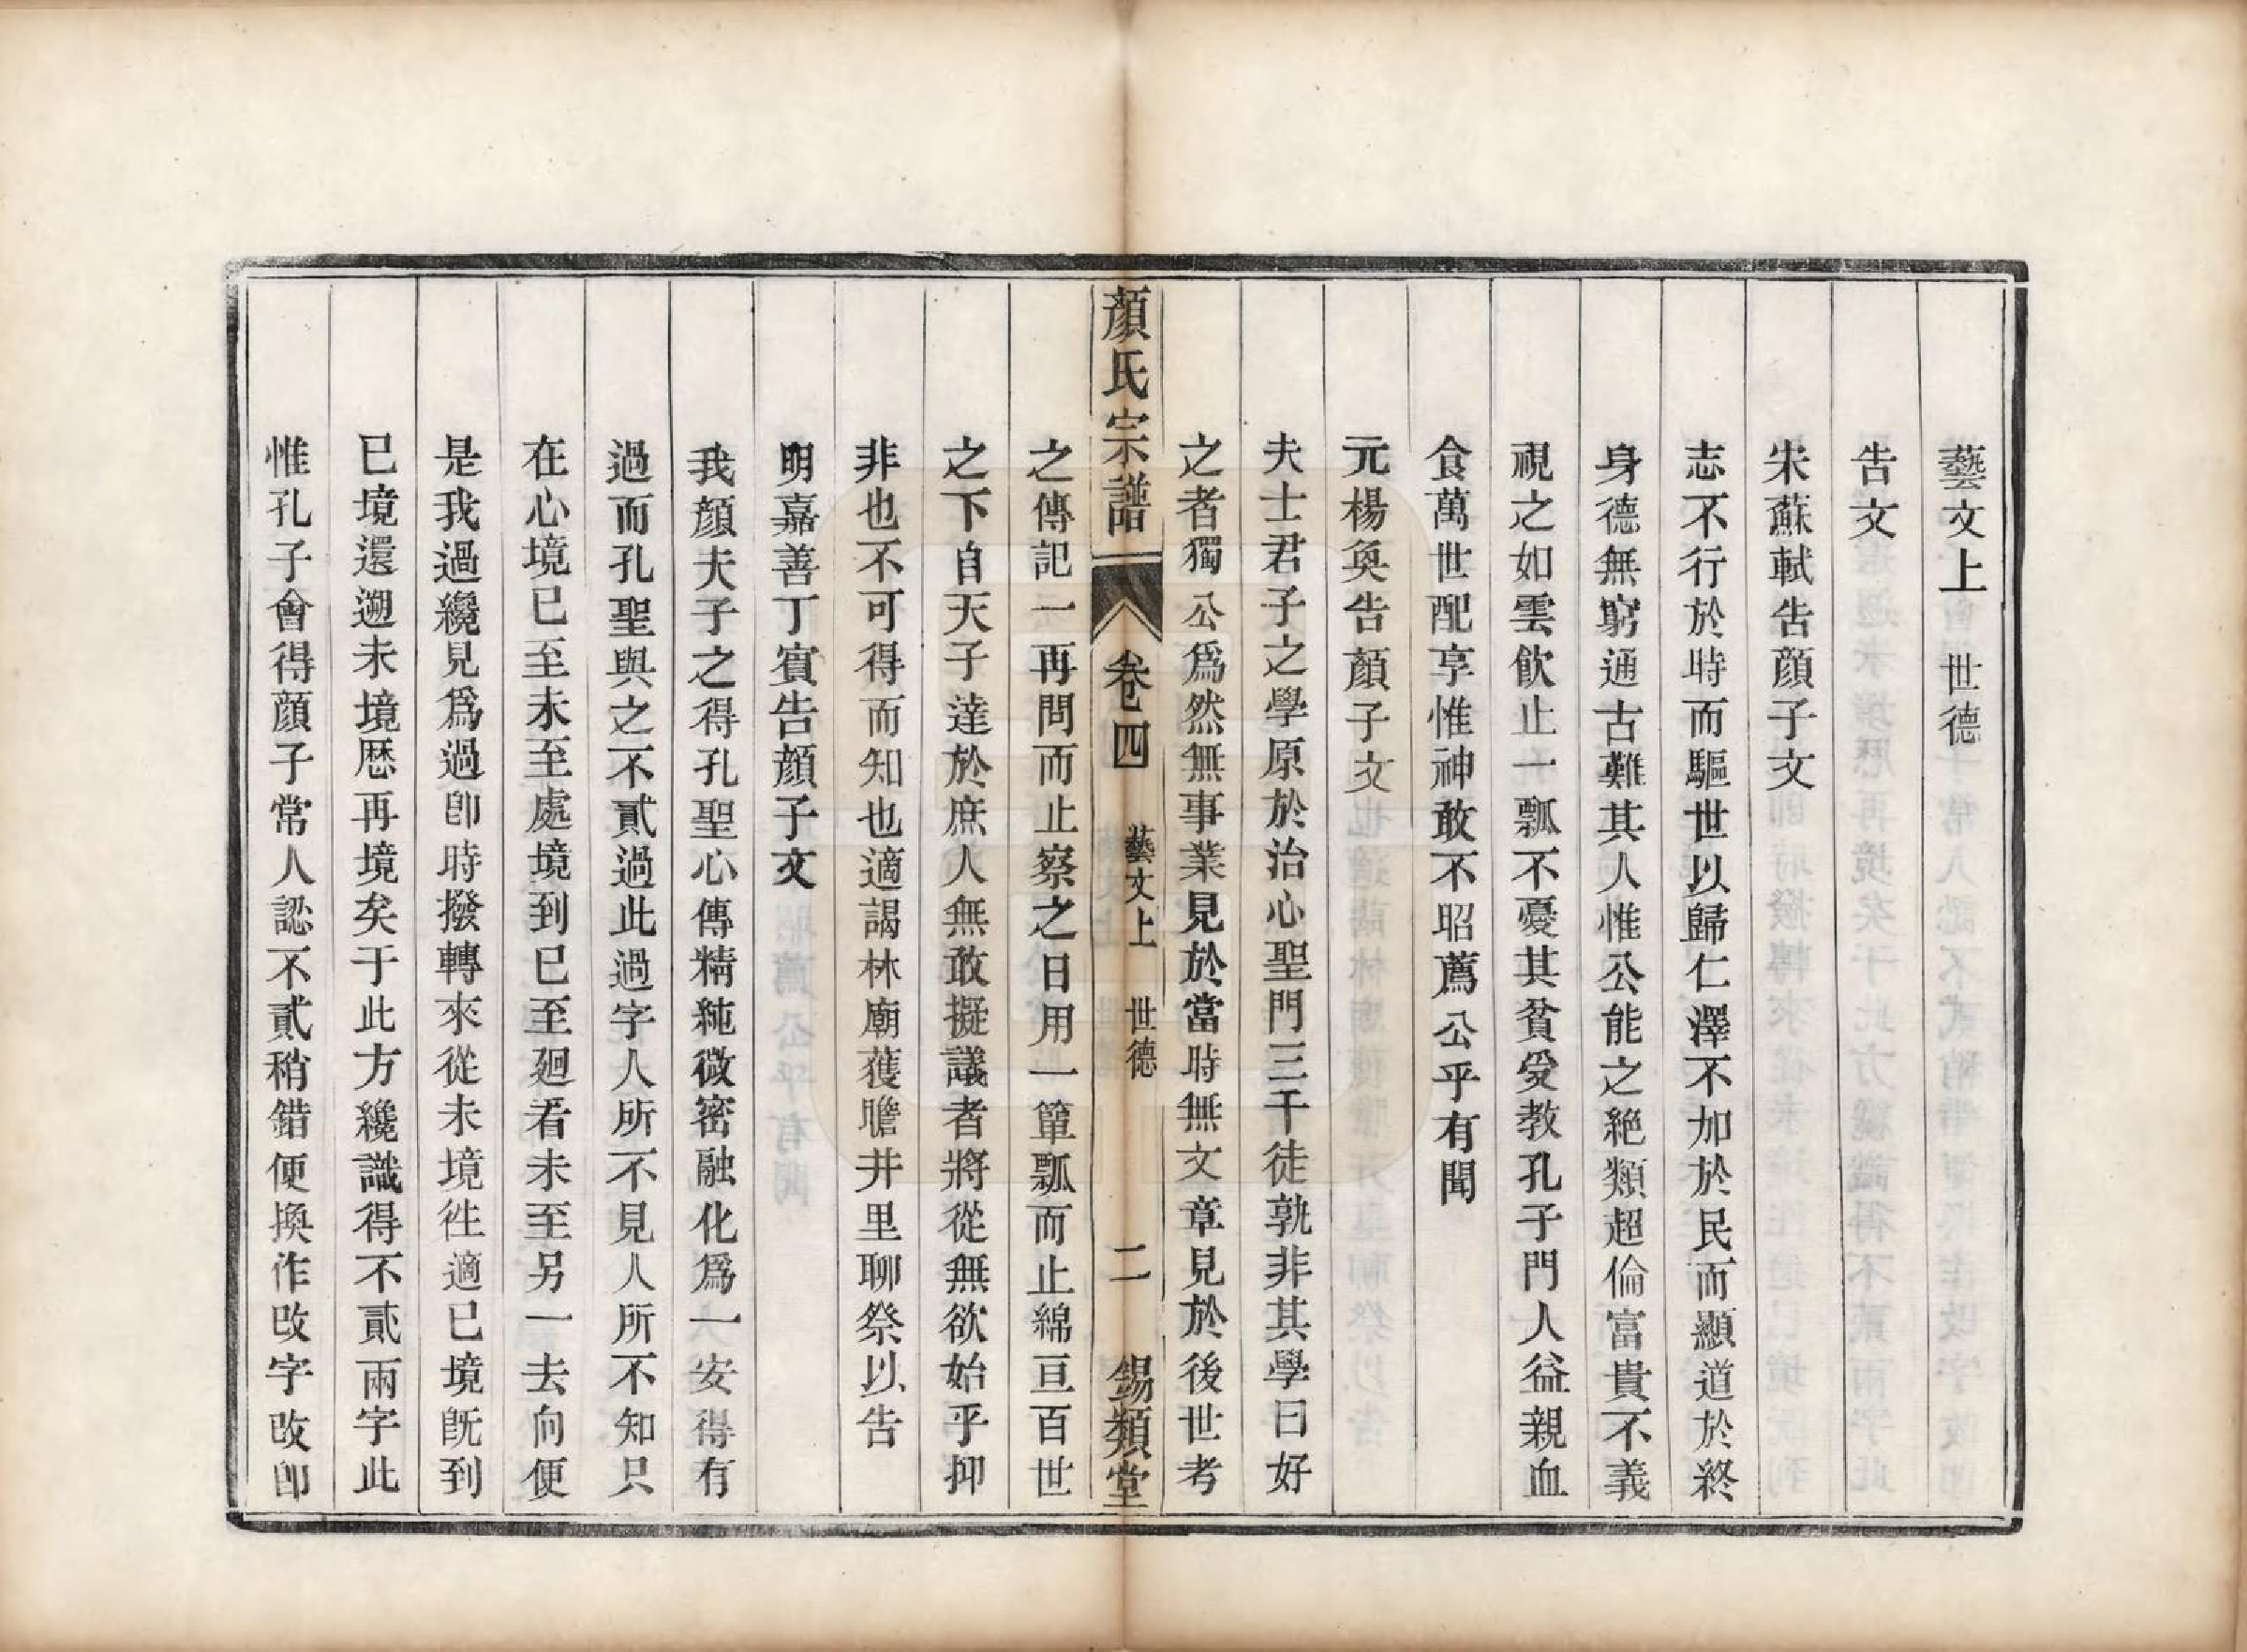 藝文上　世德
告文
宋蘇軾告顔子文
志不行於時而驅世以歸仁澤不加於民而顯道於終
身德無窮通古難其人惟公能之絶類超倫富貴不義
視之如雲飲止一瓢不憂其貧受教孔子門人益親血
食萬世配享惟神敢不昭薦公乎有聞
元楊奐告顔子文
夫士君子之學原於治心聖門三千徒孰非其學曰好
之者獨公爲然無事業見於當時無文章見於後世考
顔氏宗譜　卷四　藝文上　世德　二　錫類堂
之傳記一再問而止察之日用一簞瓢而止綿亘百世
之下自天子達於庶人無敢擬議者將從無欲始乎抑
非也不可得而知也適謁林廟獲瞻井里聊祭以告
明嘉善丁賓告顔子文
我顔夫子之得孔聖心傳精純微密融化爲一安得有
過而孔聖與之不貳過此過字人所不見人所不知只
在心境已至未至處境到已至廻看未至另一去向便
是我過纔見爲過卽時撥轉來從未境徃適已境旣到
已境還遡未境厯再境矣于此方纔識得不貳兩字此
惟孔子會得顔子常人認不貳稍錯便換作改字改卽